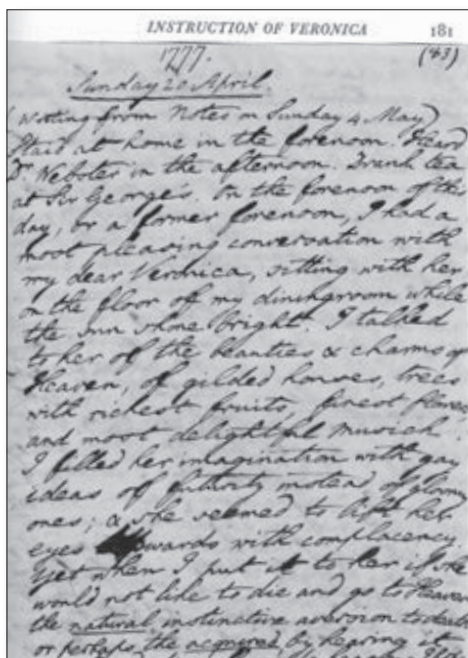 INSTRUCTION OF VERONICA 181
1777. (43)
Sunday 20 April.
(Writing from Notes on Sunday 4 May)
Staid at home in the forenoon. Heard
Dr. Webster in the afternoon. Drank tea
at Sir George's. On the forenoon of this
day, or a former forenoon, I had a
most pleasing conversation with
my dear Veronica, sitting with her
on the floor of my diningroom while
the sun shone bright. I talked
to her of the beauties & charms of
Heaven, of gilded houses, trees
with richest fruits, finest flowers
and most delightful musick.
I filled her imagination with gay
ideas of futurity instead of gloomy
ones; & she seemed to lift her
eyes upwards with complacency.
Yet when I put it to her if she
would not like to die and go to Heaven
the natural instinctive aversion to death
or perhaps the acquired by hearing it